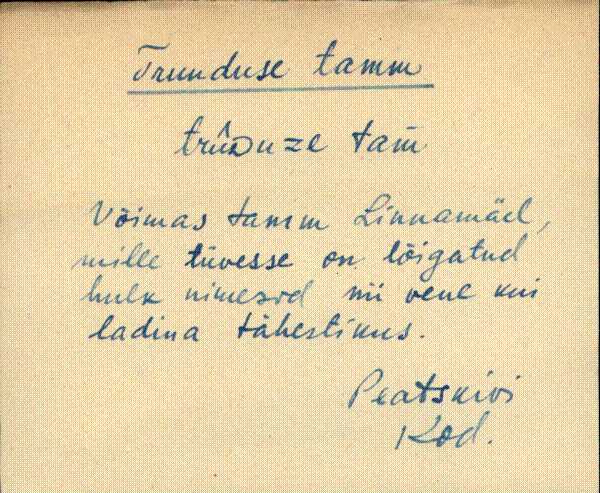 Trunduse tamm
Võimas tamm Linnamäel,
mille tüvesse on lõigatud
hulk nimesid nii vene kui
ladina tähestikus.
Peatskivi
Kod.